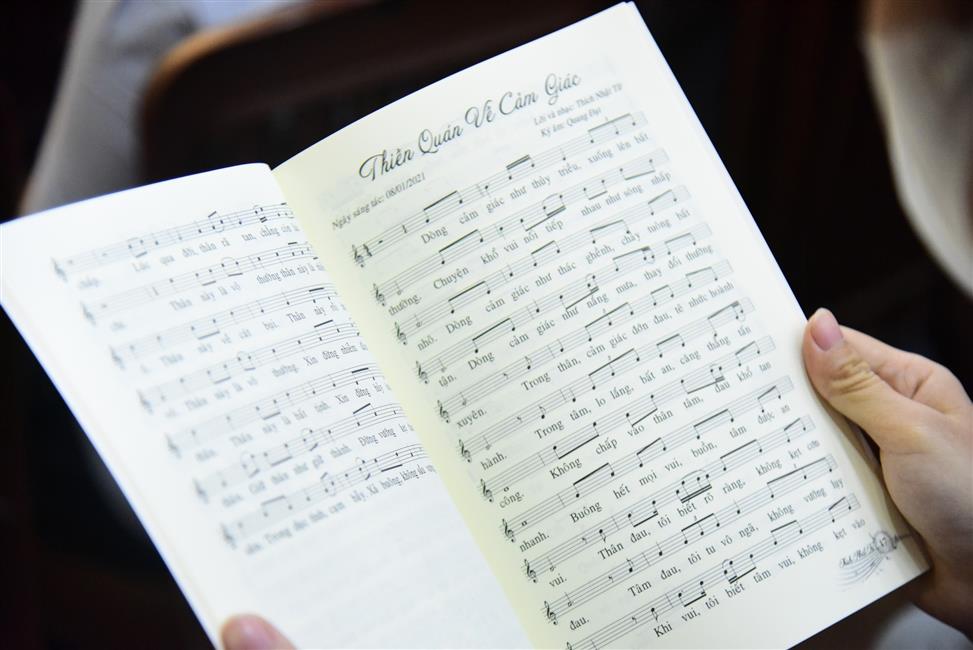 chấp. Lúc qua đời, thân rã tan, chẳng còn
chi. Thân này là vô thường thân này là
Thân này về cát bụi, Thân này
vô. Thân này là vô thường. Xin đừng nhiễm
thân. Thân này là bất tịnh. Xin đừng
thiên. Giữ thân như giữ thành. Đừng vướng
sân. Trong đục tĩnh, cam bẫy. Xả buông, không
Thiền Quán Về Cảm Giác
Lời và nhạc: Thích Nhật
Ký âm: Quang Đạt
Ngày sáng tác: 08/01/2021
Dòng cảm giác như thủy triều, xuống lên bất
thường. Chuyện khổ vui nối tiếp nhau như sóng nhấp
nhô. Dòng cảm giác như thác ghềnh, chảy tuông bất
tận. Dòng cảm giác như nắng mưa, thay đổi thường
xuyên. Trong thân, cảm giác đớn đau, tê nhức hoành
hành. Trong tâm, lo lắng, bất an, căng thẳng tấn
công. Không chấp vào thân tâm, đau khổ tan
nhanh. Buông hết mọi vui, buồn, tâm được an
vui. Thân đau, tôi biết rõ ràng, không kẹt cơn
đau. Tâm đau, tôi tu vô ngã, không vướng lụy
Khi vui, tôi biết tâm vui, không kẹt vào